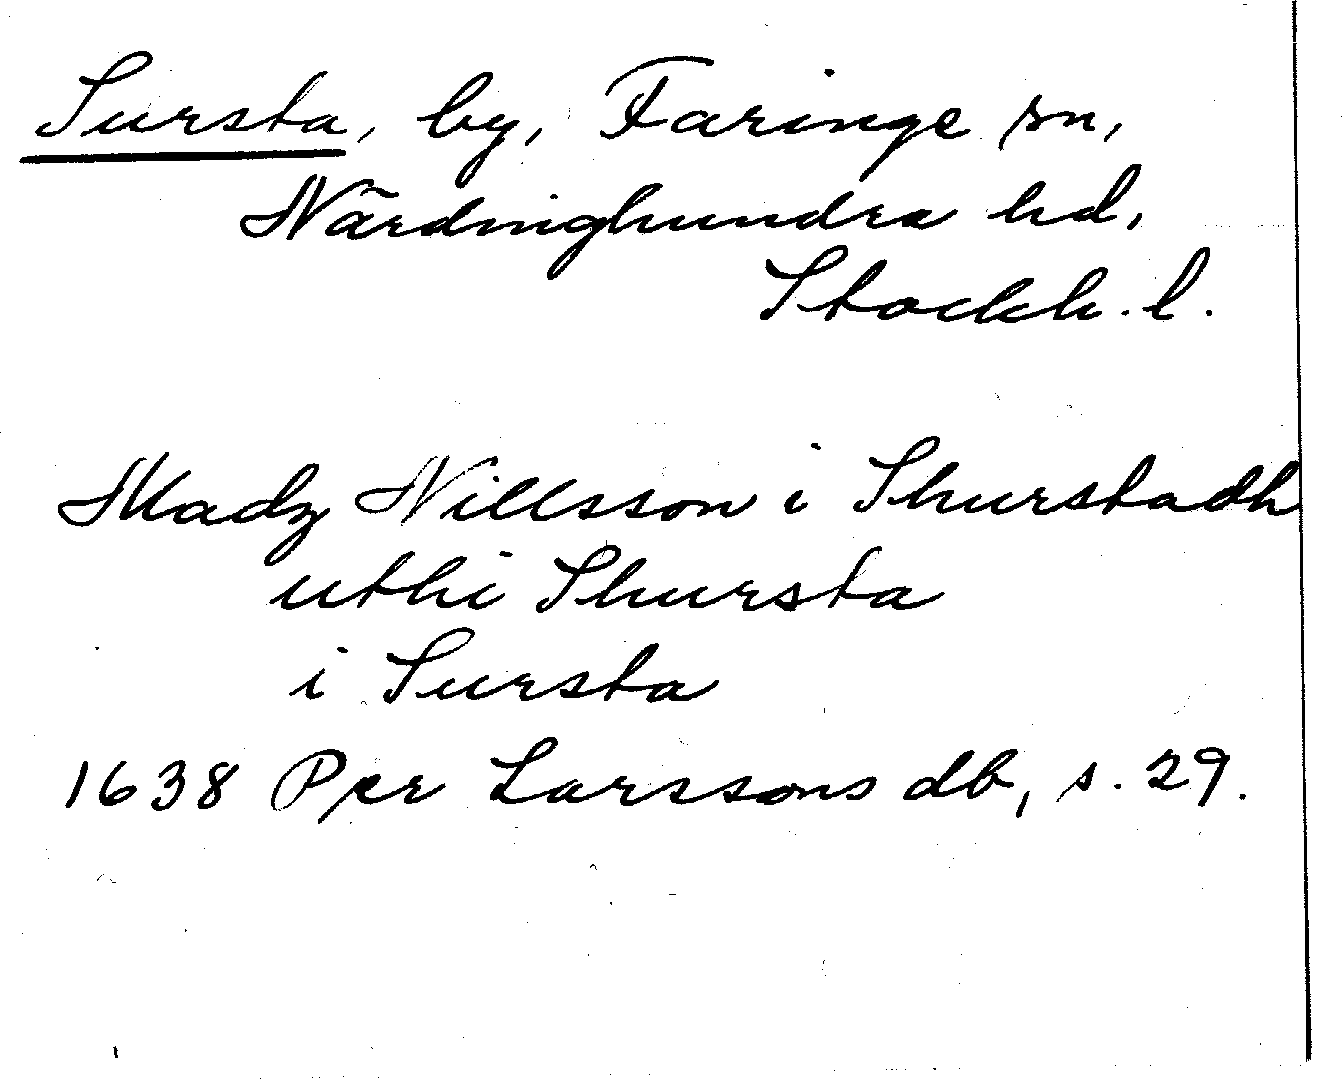 Sursta, by, Faringe sn,
Närdinghundra hd,
Stockh. l.
Madz Nillsson i Shurstadh
uthi Shursta
i Sursta
1638 Per Larssons db, s. 29.